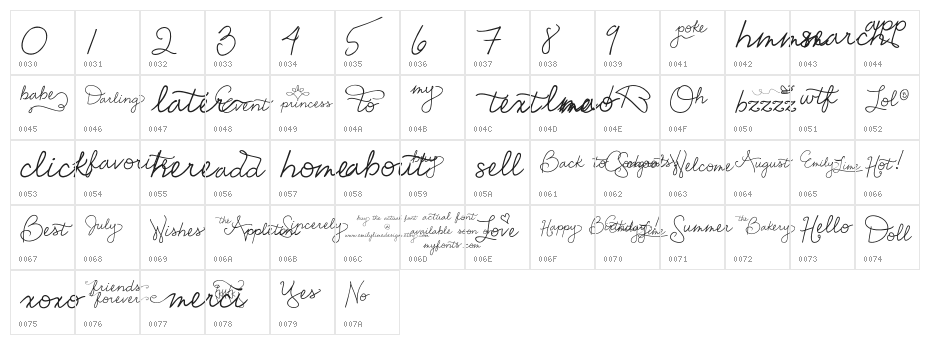 0 1 2 3 4 5 6 7 8 9 poke hmmm search app
0030 0031 0032 0033 0034 0035 0036 0037 0038 0039 0041 0042 0043 0044
babe Darling later Event princess To my text lmao Oh bzzzz wtf Lol
0045 0046 0047 0048 0049 004A 004B 004C 004D 004E 004F 0050 0051 0052
click favorite here add home about buy sell Back to Welcome August Emily Lime Hot!
0053 0054 0055 0056 0057 0058 0059 005A 0061 0062 0063 0064 0065 0066
Best July Wishes the Appletini Sincerely buy the actual font www.emilylimedesign.etsy.com actual font available soon on myfonts.com Love Happy Birthday Lime Summer the Bakery Hello Doll
0067 0068 0069 006A 006B 006C 006D 006E 006F 0070 0071 0072 0073 0074
xoxo friends forever merci Yes No
0075 0076 0077 0078 0079 007A